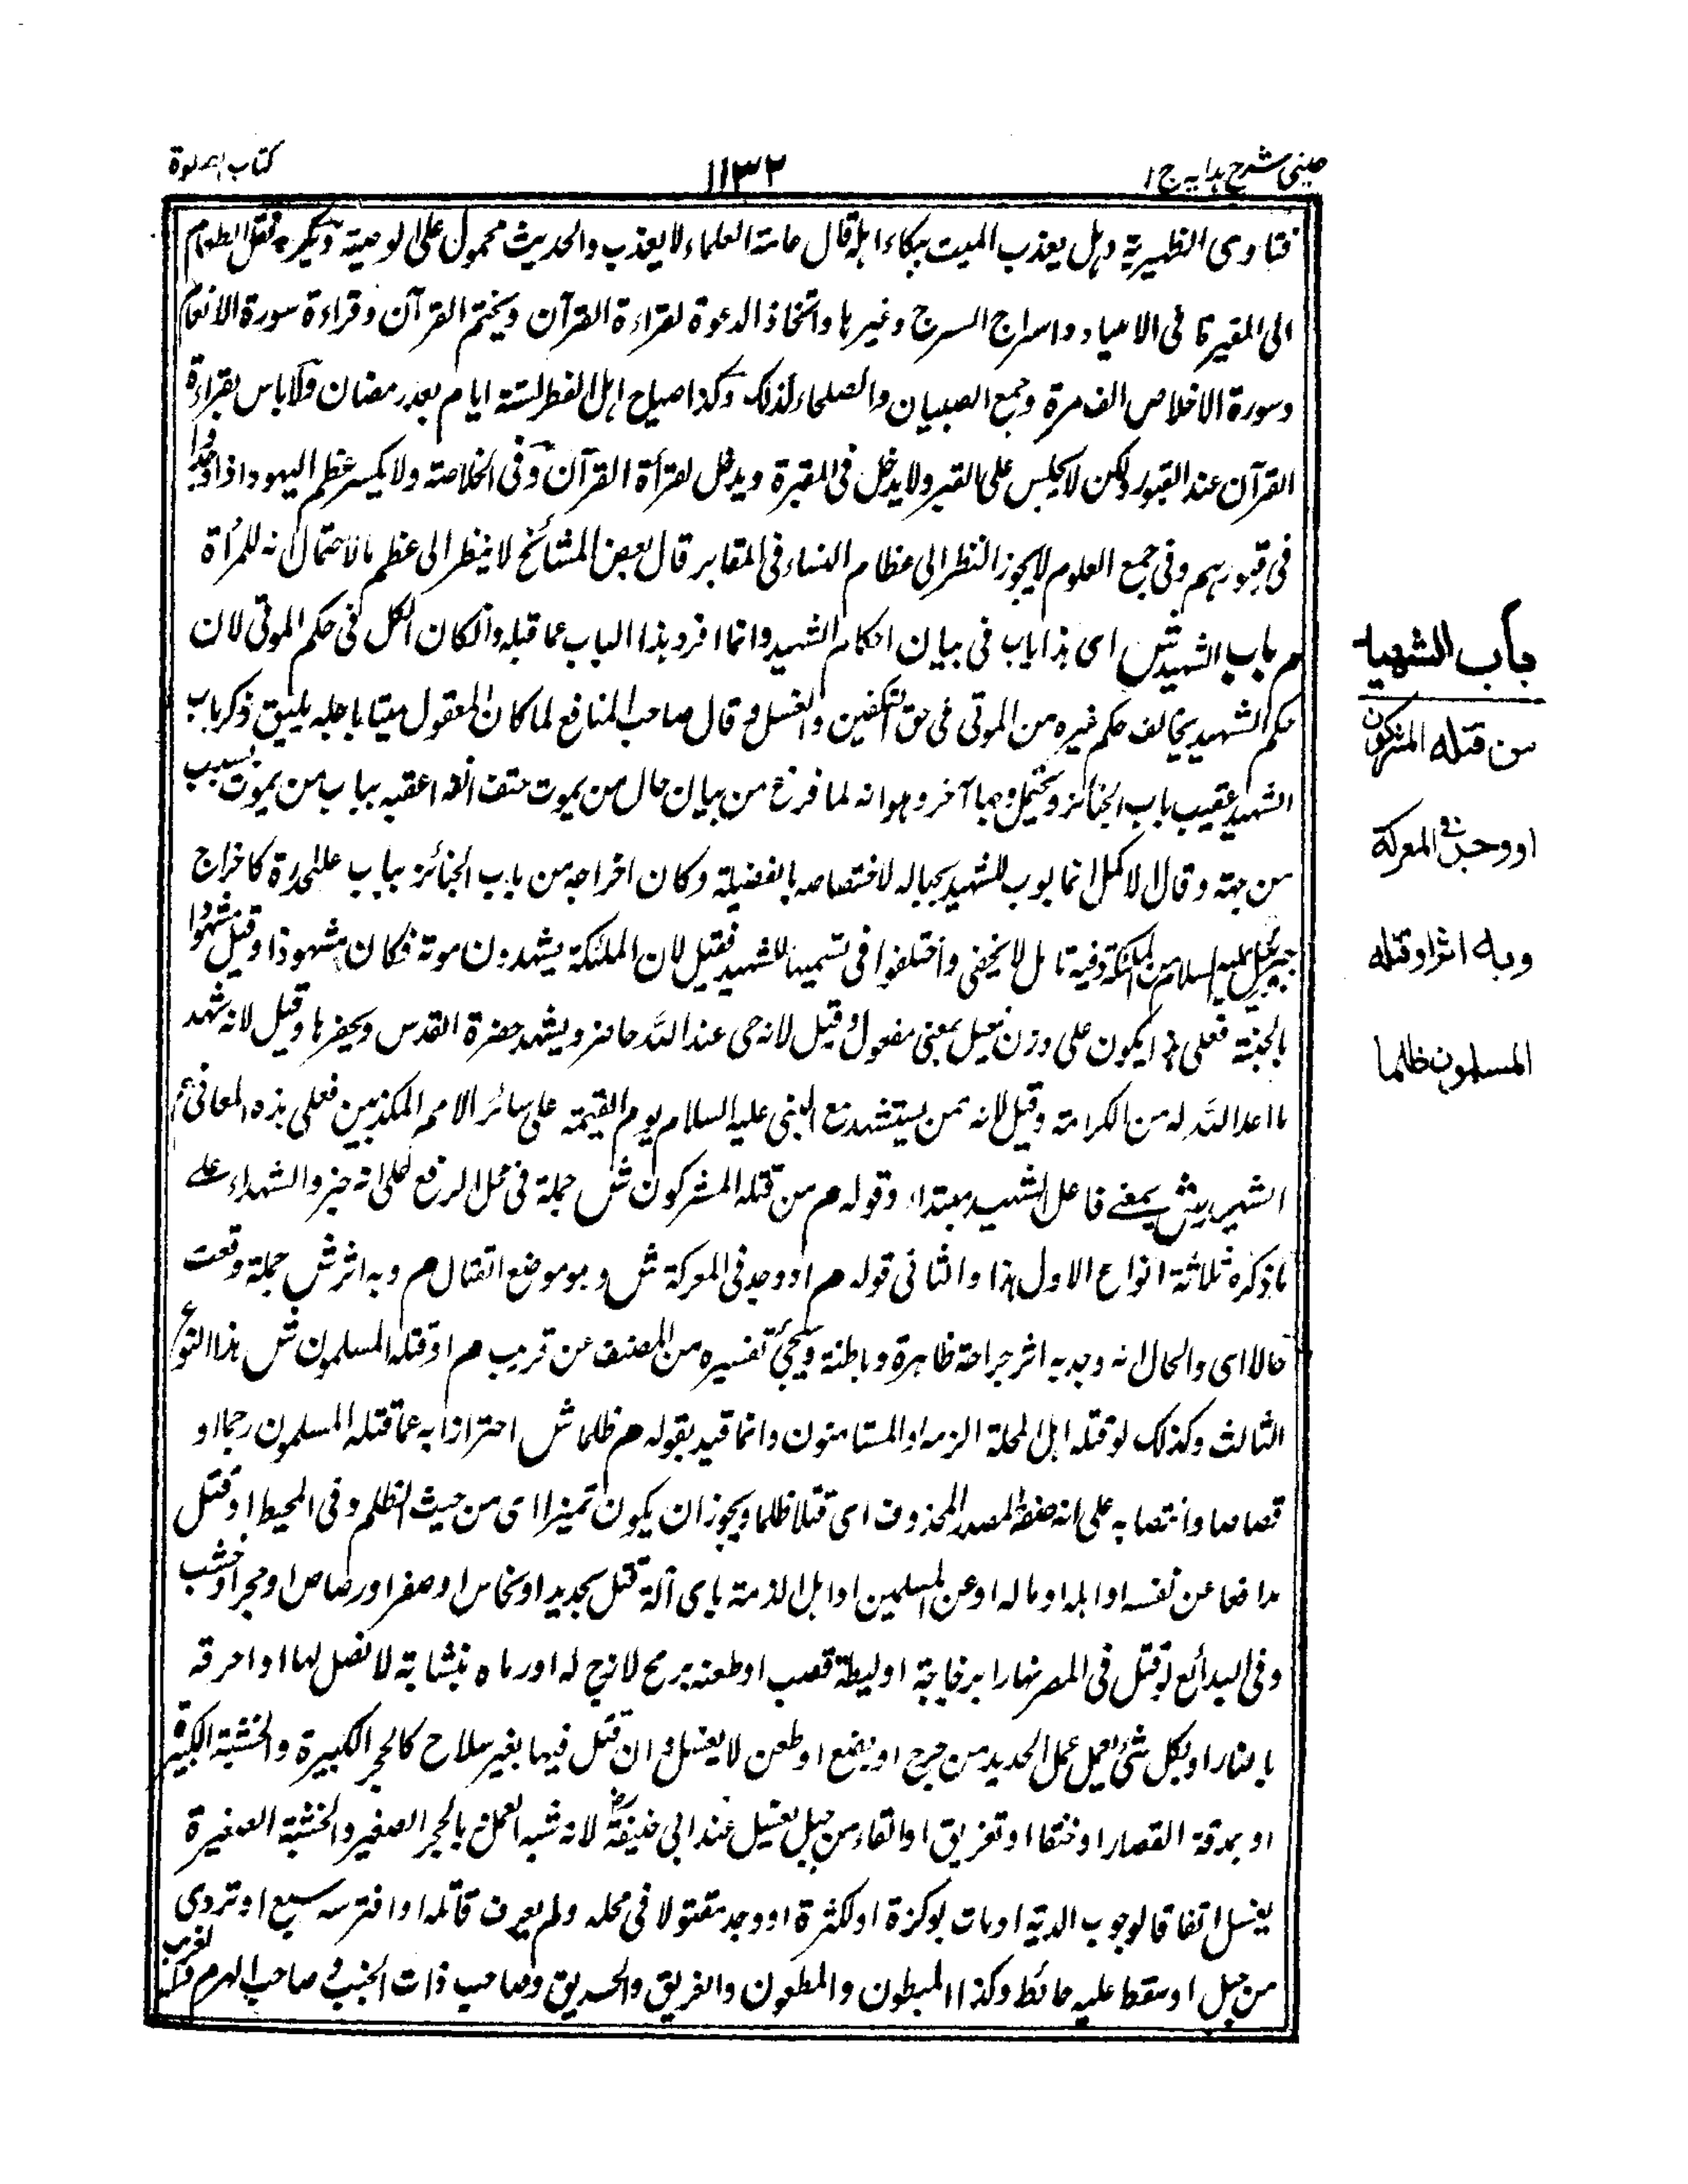 عینی شرح ہدایہ ج ۱
۱۱۳۲
کتاب الصلوة
فتاوی الظہیریة وہل یعذب المیت ببکاء اہلہ قال عامة العلماء لا یعذب والحدیث محمول علی الوصیة ویکرہ نقل الطعام
الی المقبرة فی الاعیاد واسراج السرج وغیرہا واتخاذ الدعوة لقراءة القرآن ویختم القرآن وقراءة سورة الانعام
وسورة الاخلاص الف مرة وجمع الصبیان والصلحاء لذلک وکذا اہل الفطر لستة ایام بعد رمضان ولا باس بقراءة
القرآن عند القبور ولکن لا یجلس علی القبر ولا یدخل فی المقبرة ویدخل لقرأة القرآن وفی الخلاصة ولا یکسر عظم الیہود اذا وجدوا
فی قبورہم وفی جمع العلوم لا یجوز النظر الی عظام النساء فی المقابر قال بعض المشائخ لا ینظر الی عظم ما لاحتمال انہ للمرأة
م باب الشہید ش ای ہذا باب فی بیان احکام الشہید وانما افرد ہذا الباب عما قبلہ وان کان الکل فی حکم الموتی لان
حکم الشہید یخالف حکم غیرہ من الموتی فی حق التکفین والغسل وقال صاحب المنافع لما کان المقتول میتا باجلہ یلیق ذکر باب
الشہید عقیب باب الجنائز ویحتمل وجہا آخر وہو انہ لما فرغ من بیان حال من یموت حتف انفہ اعقبہ بباب من یموت بسبب
من جہتہ وقال الاکمل انما بوب للشہید بحیالہ لاختصاصہ بالفضیلة وکان اخراجہ من باب الجنائز بباب علی حدة کاخراج
جبریل علیہ السلام من الملئکة وفیہ تامل لا یخفی واختلفوا فی تسمیة الشہید فقیل لان الملئکة یشہدون موتہ فکان مشہودا وقیل مشہود
بالجنة فعلی ہذا یکون علی وزن فعیل بمعنی مفعول وقیل لانہ حی عند اللہ حاضر ویشہد حضرة القدس ویحضرہا وقیل لانہ شہد
ما اعد اللہ لہ من الکرامة وقیل لانہ ممن یستشہد مع النبی علیہ السلام یوم القیمة علی سائر الامم المکذبین فعلی ہذہ المعانی م
الشہید ش بمعنی فاعل الشہید مبتداء وقولہ م من قتلہ المشرکون ش جملة فی محل الرفع علی انہ خبر والشہداء علی
ما ذکرہ ثلاثة انواع الاول ہذا والثانی قولہ م او وجد فی المعرکة ش وہو موضع القتال م وبہ اثر ش جملة وقعت
حالا ای والحال انہ وجد بہ اثر جراحة ظاہرة وباطنة ویجئ تفسیرہ من المصنف عن قریب م او قتلہ المسلمون ش ہذا النوع
الثالث وکذلک لو قتلہ اہل الذمة او المستامنون وانما قید بقولہ م ظلما ش احترازا بہ عما قتلہ المسلمون رجما او
قصاصا وانتصابہ علی انہ صفة المصدر المحذوف ای قتلا ظلما ویجوز ان یکون تمیزا ای من حیث الظلم وفی المحیط او قتل
مدافعا عن نفسہ او اہلہ او مالہ او عن المسلمین او اہل الذمة بای آلة قتل بحدید او نحاس او صفر او رصاص او حجر او خشب
وفی البدائع لو قتل فی المصر نہارا بزجاجة او لیطة قصب او طعنہ برمح لا زج لہ او رماہ بنشابة لا نصل لہا او احرقہ
بالنار او بکل شئ یعمل عمل الحدید من جرح او بضع او طعن لا یغسل وان قتل فیہا بغیر سلاح کالحجر الکبیرة والخشبة الکبیرة
او بمدقة القصار او خنقا او تغریق او القاء من جبل یغسل عند ابی حنیفة لانہ شبہ العمد بالحجر الصغیر والخشبة الصغیرة
یغسل اتفاقا لوجوب الدیة او مات بوکزة او لکثرة او وجد مقتولا فی محلہ ولم یعرف قاتلہ او افترسہ سبع او تردی
من جبل او سقط علیہ حائط وکذا المبطون والمطعون والغریق والحریق وصاحب ذات الجنب وصاحب الہرم
باب الشهید
من قتله المشركون
او وجد فی المعركة
وبه اثر او قتله
المسلمون ظلما